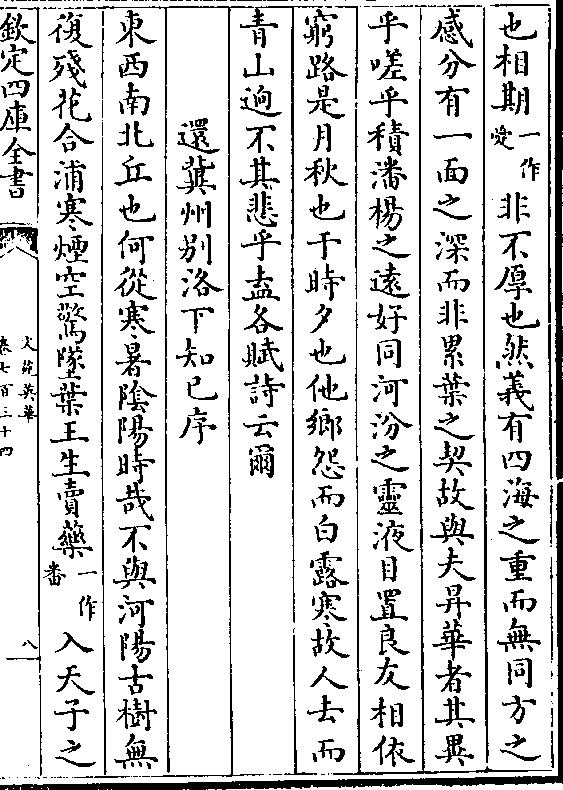 也相期一作受非不厚也然義有四海之重而無同方之
感分有一面之深而非累葉之契故與夫昇華者其異
乎嗟乎積潘楊之遠好同河汾之靈液目置良友相依
窮路是月秋也于時夕也他鄉怨而白露寒故人去而
青山逈不其悲乎盍各賦詩云爾
還冀州别洛下知已序
東西南北丘也何從寒暑陰陽時哉不與河陽古樹無
復殘花合浦寒煙空驚墜葉王生賣藥一作畚入天子之
欽定四庫全書
文苑英華
卷七百三十四
八